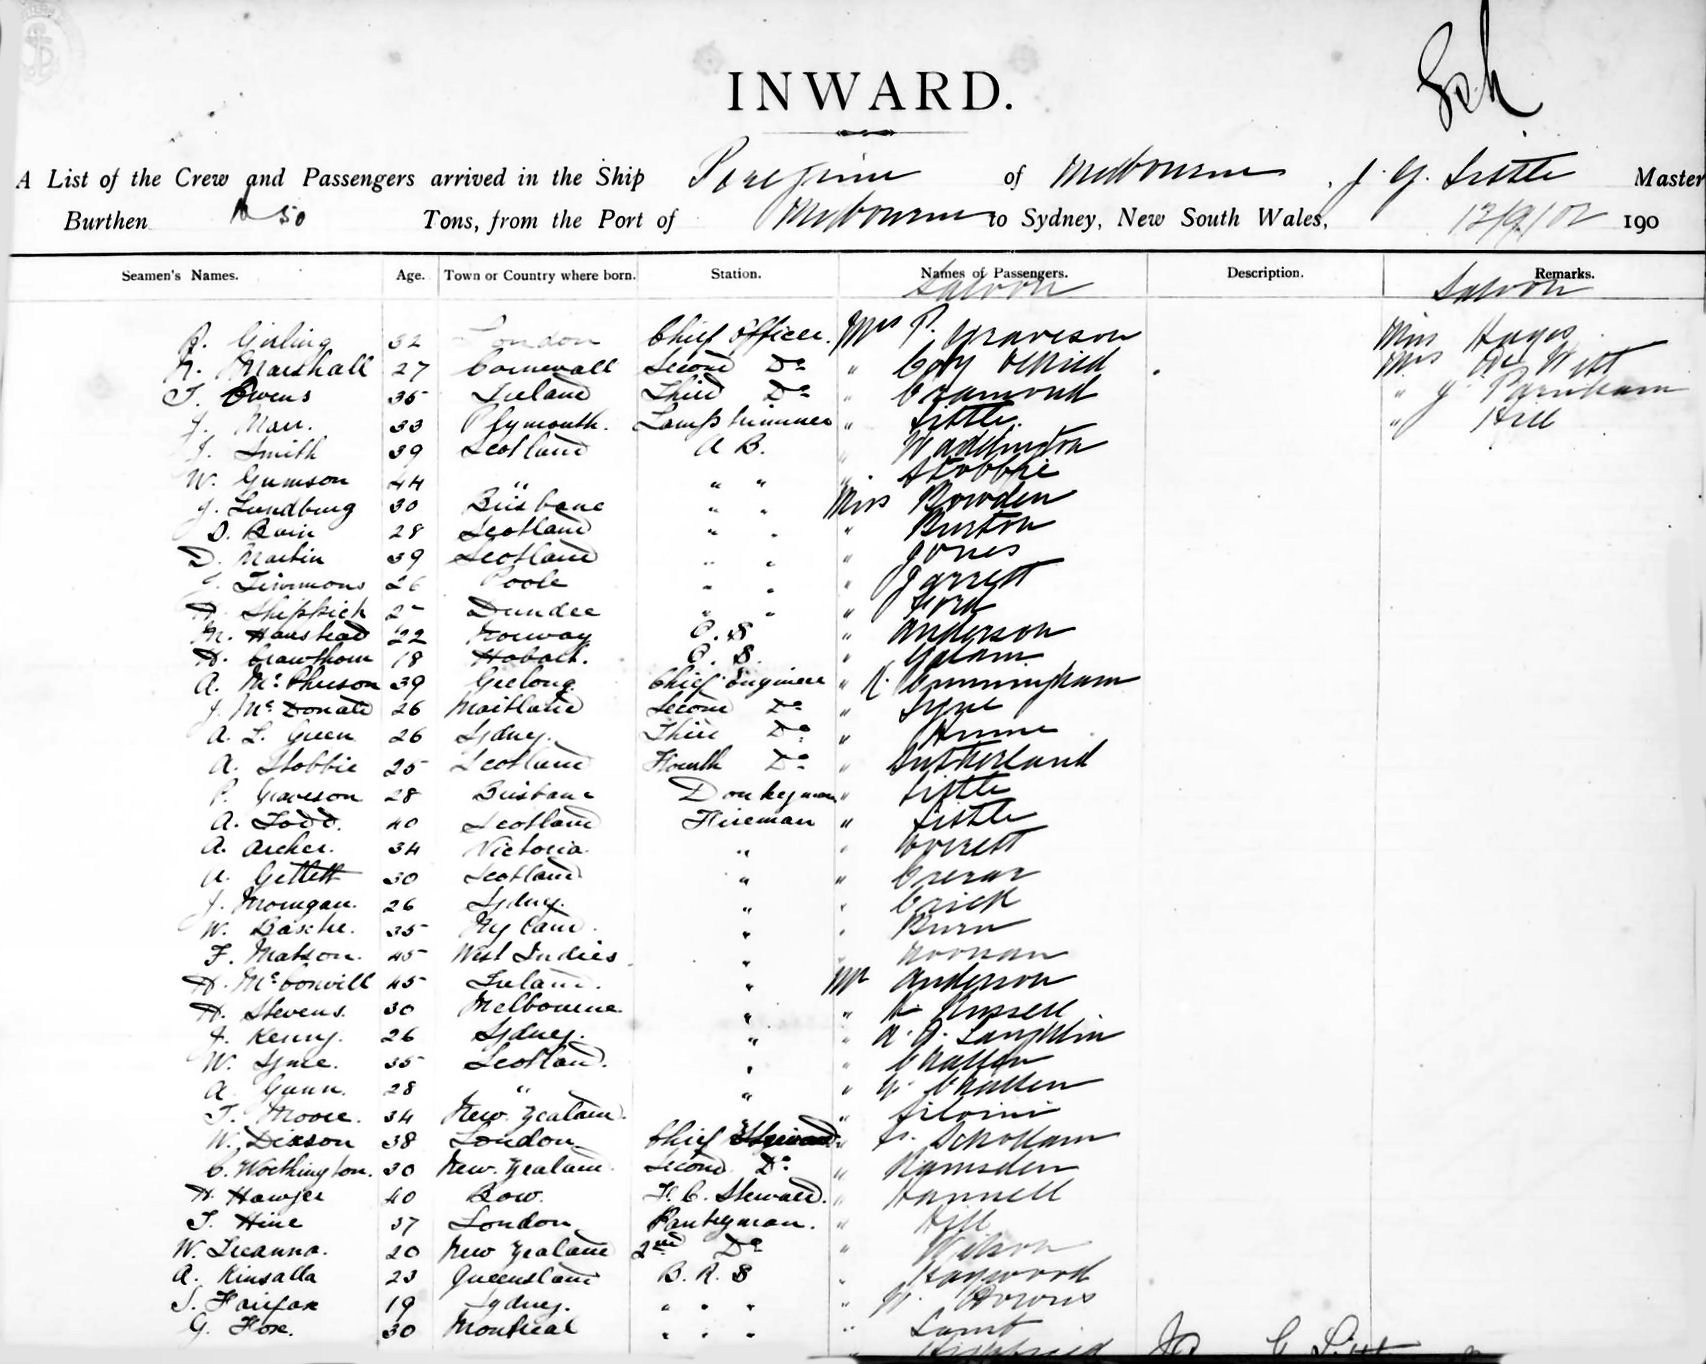 INWARD.
A List of the Crew and Passengers arrived in the Ship Peregrine of Melbourne, J. G. Little Master
Burthen 50 Tons, from the Port of Melbourne to Sydney, New South Wales, 13/9/02 190
Seamen's Names. Age. Town or Country where born. Station. Names of Passengers. Description. Remarks.
Saloon Saloon
Girling 32 London Chief Officer. Mrs P. Graveson Miss Hayes
Marshall 27 Cornwall Second Do " Mrs De Witt
T. Owens 35 Ireland Third Do " Cramond " J Parnham
J. Marr. 33 Plymouth. Lamp trimmer " Little. " Hill
J. Smith 39 Scotland A B. " Waddington
W. Gumson 44 " " " " Stobbie
J. Lundburg 30 Brisbane " " Miss Bowden
D. Bain 28 Scotland " " " Burton
D. Martin 39 Scotland " " " Jones
J. Timmons 26 Poole " " " Garrett
H. Shippick 2 Dundee " " " Ford
M. Hanshead 22 Norway O. S " Anderson
H. Crawthorn 18 Hobart. O. S. "
A. McPherson 39 Geelong Chief Engineer " Cunningham
J. McDonald 26 Maitland Second Do " Syme
A. L. Green 26 Sydney. Third Do " Hume
A. Stobbie 25 Scotland Fourth Do " Sutherland
P. Graveson 28 Brisbane Donkeyman " Little
A. Todd. 40 Scotland Fireman " Little
A. Archer. 34 Victoria. " " Everett
Gillett 30 Scotland " " Crerar
J. Morrigan. 26 Sydney. " " Crick
W. Basche. 35 " " Burn
F. Matson. 45 West Indies. " " Noonan
H. McConvill 45 Ireland. " Mr Anderson
H. Stevens. 30 Melbourne. " " Russell
J. Kenny. 26 Sydney. " " Laughlin
W. Syme. 35 Scotland. " " Challen
A. Gunn. 28 " " " Challen
T. Moore. 34 New Zealand. " " Silvini
W. Dixson 38 London Chief Steward "
C. Worthington. 30 New Zealand Second Do " Ramsden
H. Hawyer 40 Bow. F. C. Steward. " Hannell
T. Hine 37 London Pantryman. " Hill
W. Treanna. 20 New Zealand 2nd Do " Wilson
A. Kinsalla 23 Queensland B. R. S " Haywood
S. Fairfax 19 Sydney. " " " "
G. Fox. 30 Montreal " " " " Lamb